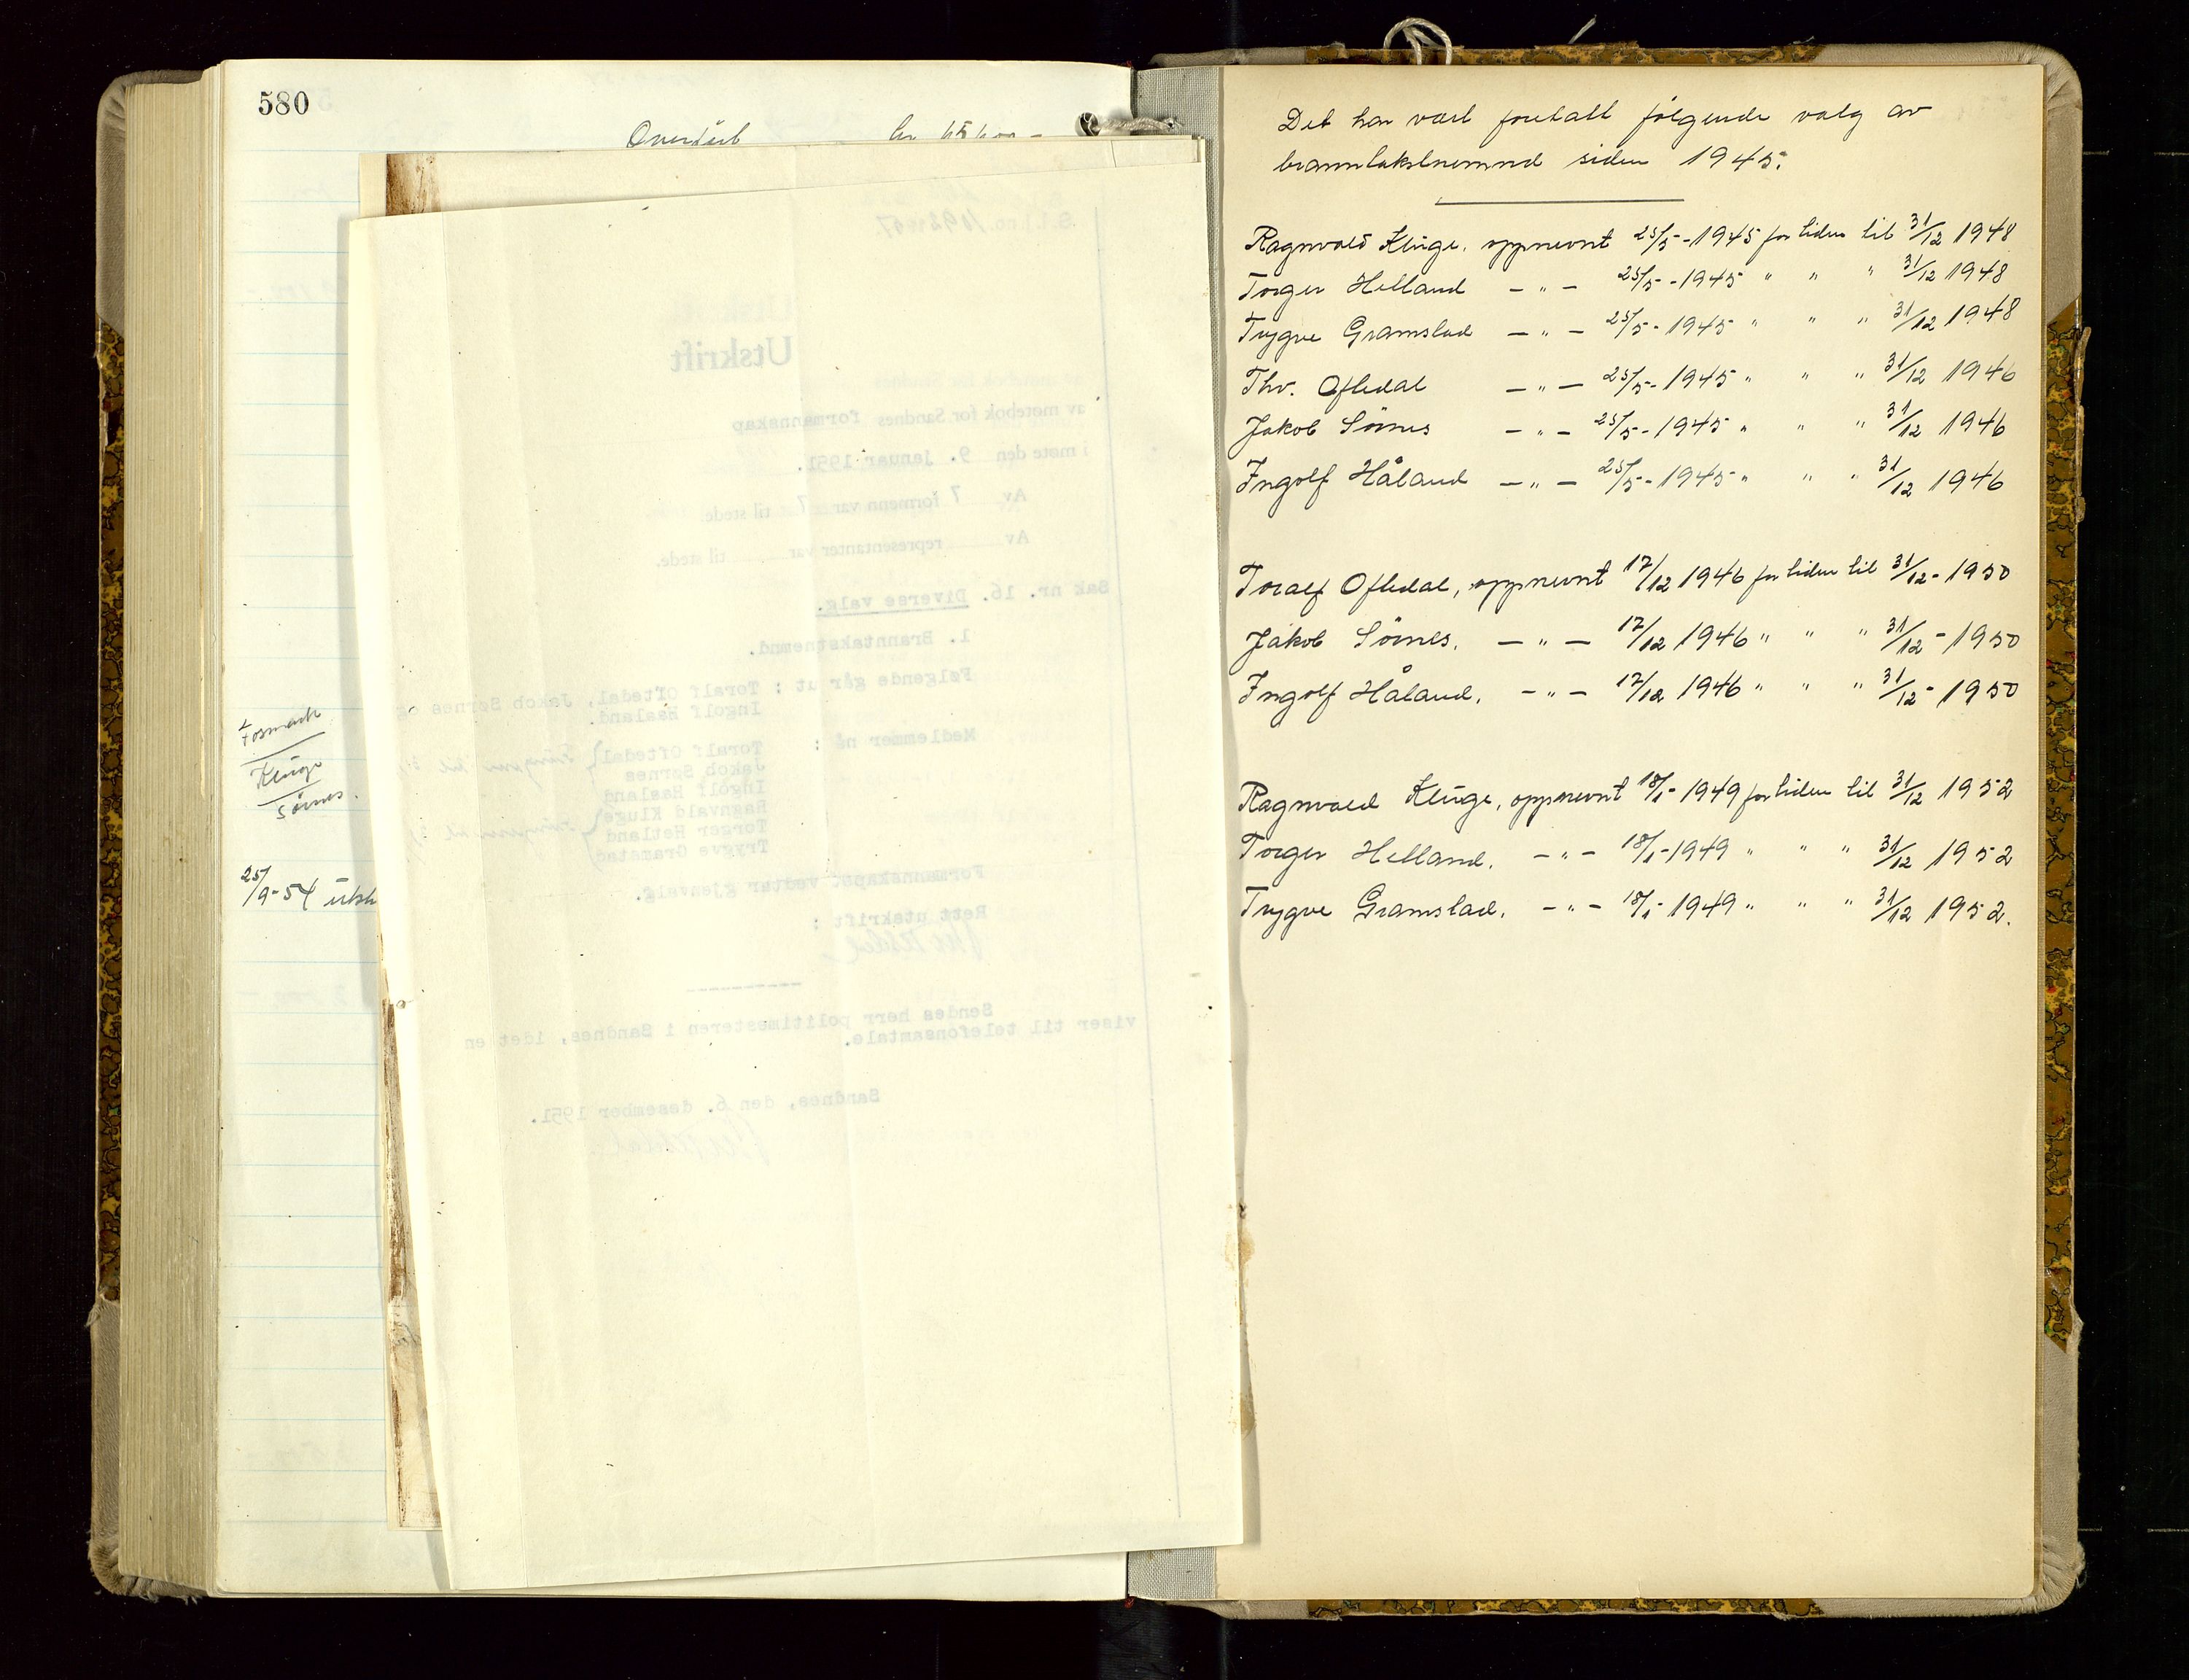 580
Kluge
Sørnes.
25/9-54 utsk
S. J.no. 1092 1951
Utskrift
av møtebok for Sandnes formannskap
i møte den 9. januar 1951.
Av 7 formenn var 7 til stede.
Av representanter var til stede.
Sak nr. 16. Diverse valg.
1. Branntakstnemnd.
Følgende går ut : Toralf Oftedal, Jakob Sørnes og
Ingolf Haaland.
Medlemmer nå : Toralf Oftedal
Jakob Sørnes
Ingolf Haaland
Ragnvald Kluge
Torger Hetland
Trygve Gramstad
Formannskapet vedtar gjenvalg.
Rett utskrift :
Sendes herr politimesteren i Sandnes, idet en
viser til telefonsamtale.
Sandnes, den 6. desember 1951.
Det har vært foretatt følgende valg av
branntakstnemnd siden 1945:
Ragnvald Kluge, oppnevnt 25/5-1945 for tiden til 31/12 1948
Torger Hetland — " — 25/5-1945 " " " 31/12 1948
Trygve Gramstad — " — 25/5-1945 " " " 31/12 1948
Thv. Oftedal — " — 25/5-1945 " " " 31/12 1946
Jakob Sörnes — " — 25/5-1945 " " " 31/12 1946
Ingolf Håland — " — 25/5-1945 " " " 31/12 1946
Toralf Oftedal, oppnevnt 17/12 1946 for tiden til 31/12-1950
Jakob Sörnes, — " — 17/12 1946 " " " 31/12-1950
Ingolf Håland, — " — 17/12 1946 " " " 31/12-1950
Ragnvald Kluge, oppnevnt 18/1-1949 for tiden til 31/12 1952
Torger Hetland, — " — 18/1-1949 " " " 31/12 1952
Trygve Gramstad, — " — 18/1-1949 " " " 31/12 1952.